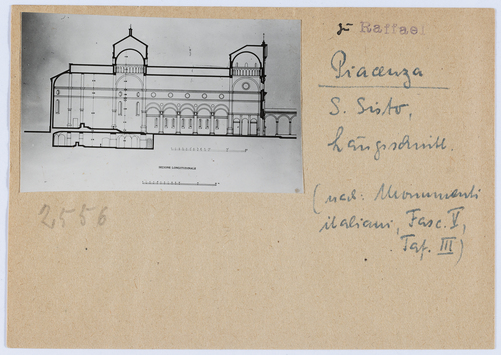 zu Raffael
Piacenza
S. Sisto,
Längsschnitt.
(nach: Monumenti
italiani, Fasc. V,
Taf. III)
SEZIONE LONGITUDINALE
2556